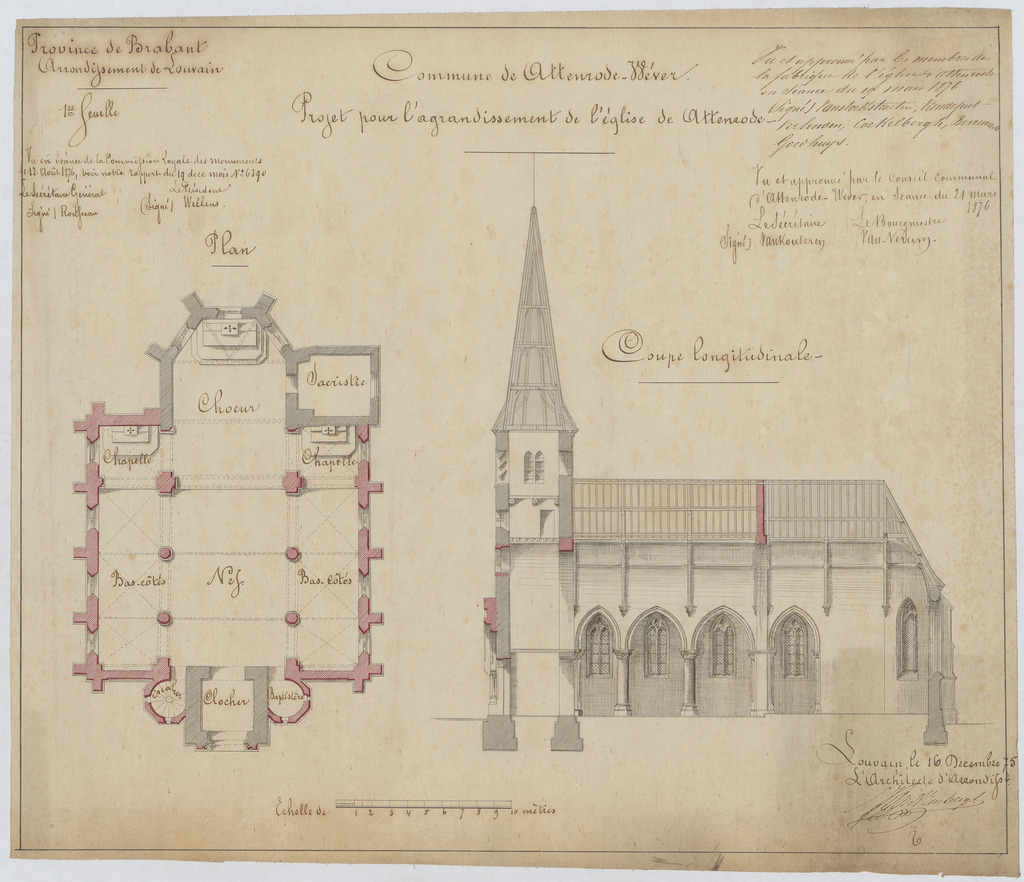 Province de Brabant
Arrondissement de Louvain
1re Feuille
Commune de Attenrode-Wéver.
Projet pour l'agrandissement de l'église de Attenrode-
Vu et approuvé par les membres de
la fabrique de l'église d'Attenrode
en séance du 19 mars 1876
Signés
Coekelbergh,
Goedhuys.
Vu en séance de la Commission Royale des monuments
le 12 Août 1876, voir notre rapport du 19 dece mois No 6390
Le Secrétaire Général
Le Président
Signé) Rousseau
(Signé) Wellens.
Vu et approuvé par le Conseil Communal
d'Attenrode-Wever, en séance du 21 mars
1876
Le Sécrétaire
Le Bourgmestre
Signé) Vankouteren
Plan
Coupe longitudinale-
Sacristie
Choeur
Chapelle
Chapelle
Bas-côtés
Nef
Bas-côtés
Escalier
Clocher
Baptistère
Echelle de
1 2 3 4 5 6 7 8 9 10 mètres
Louvain, le 16 Decembre 75
L'Architecte d'Arrondisst